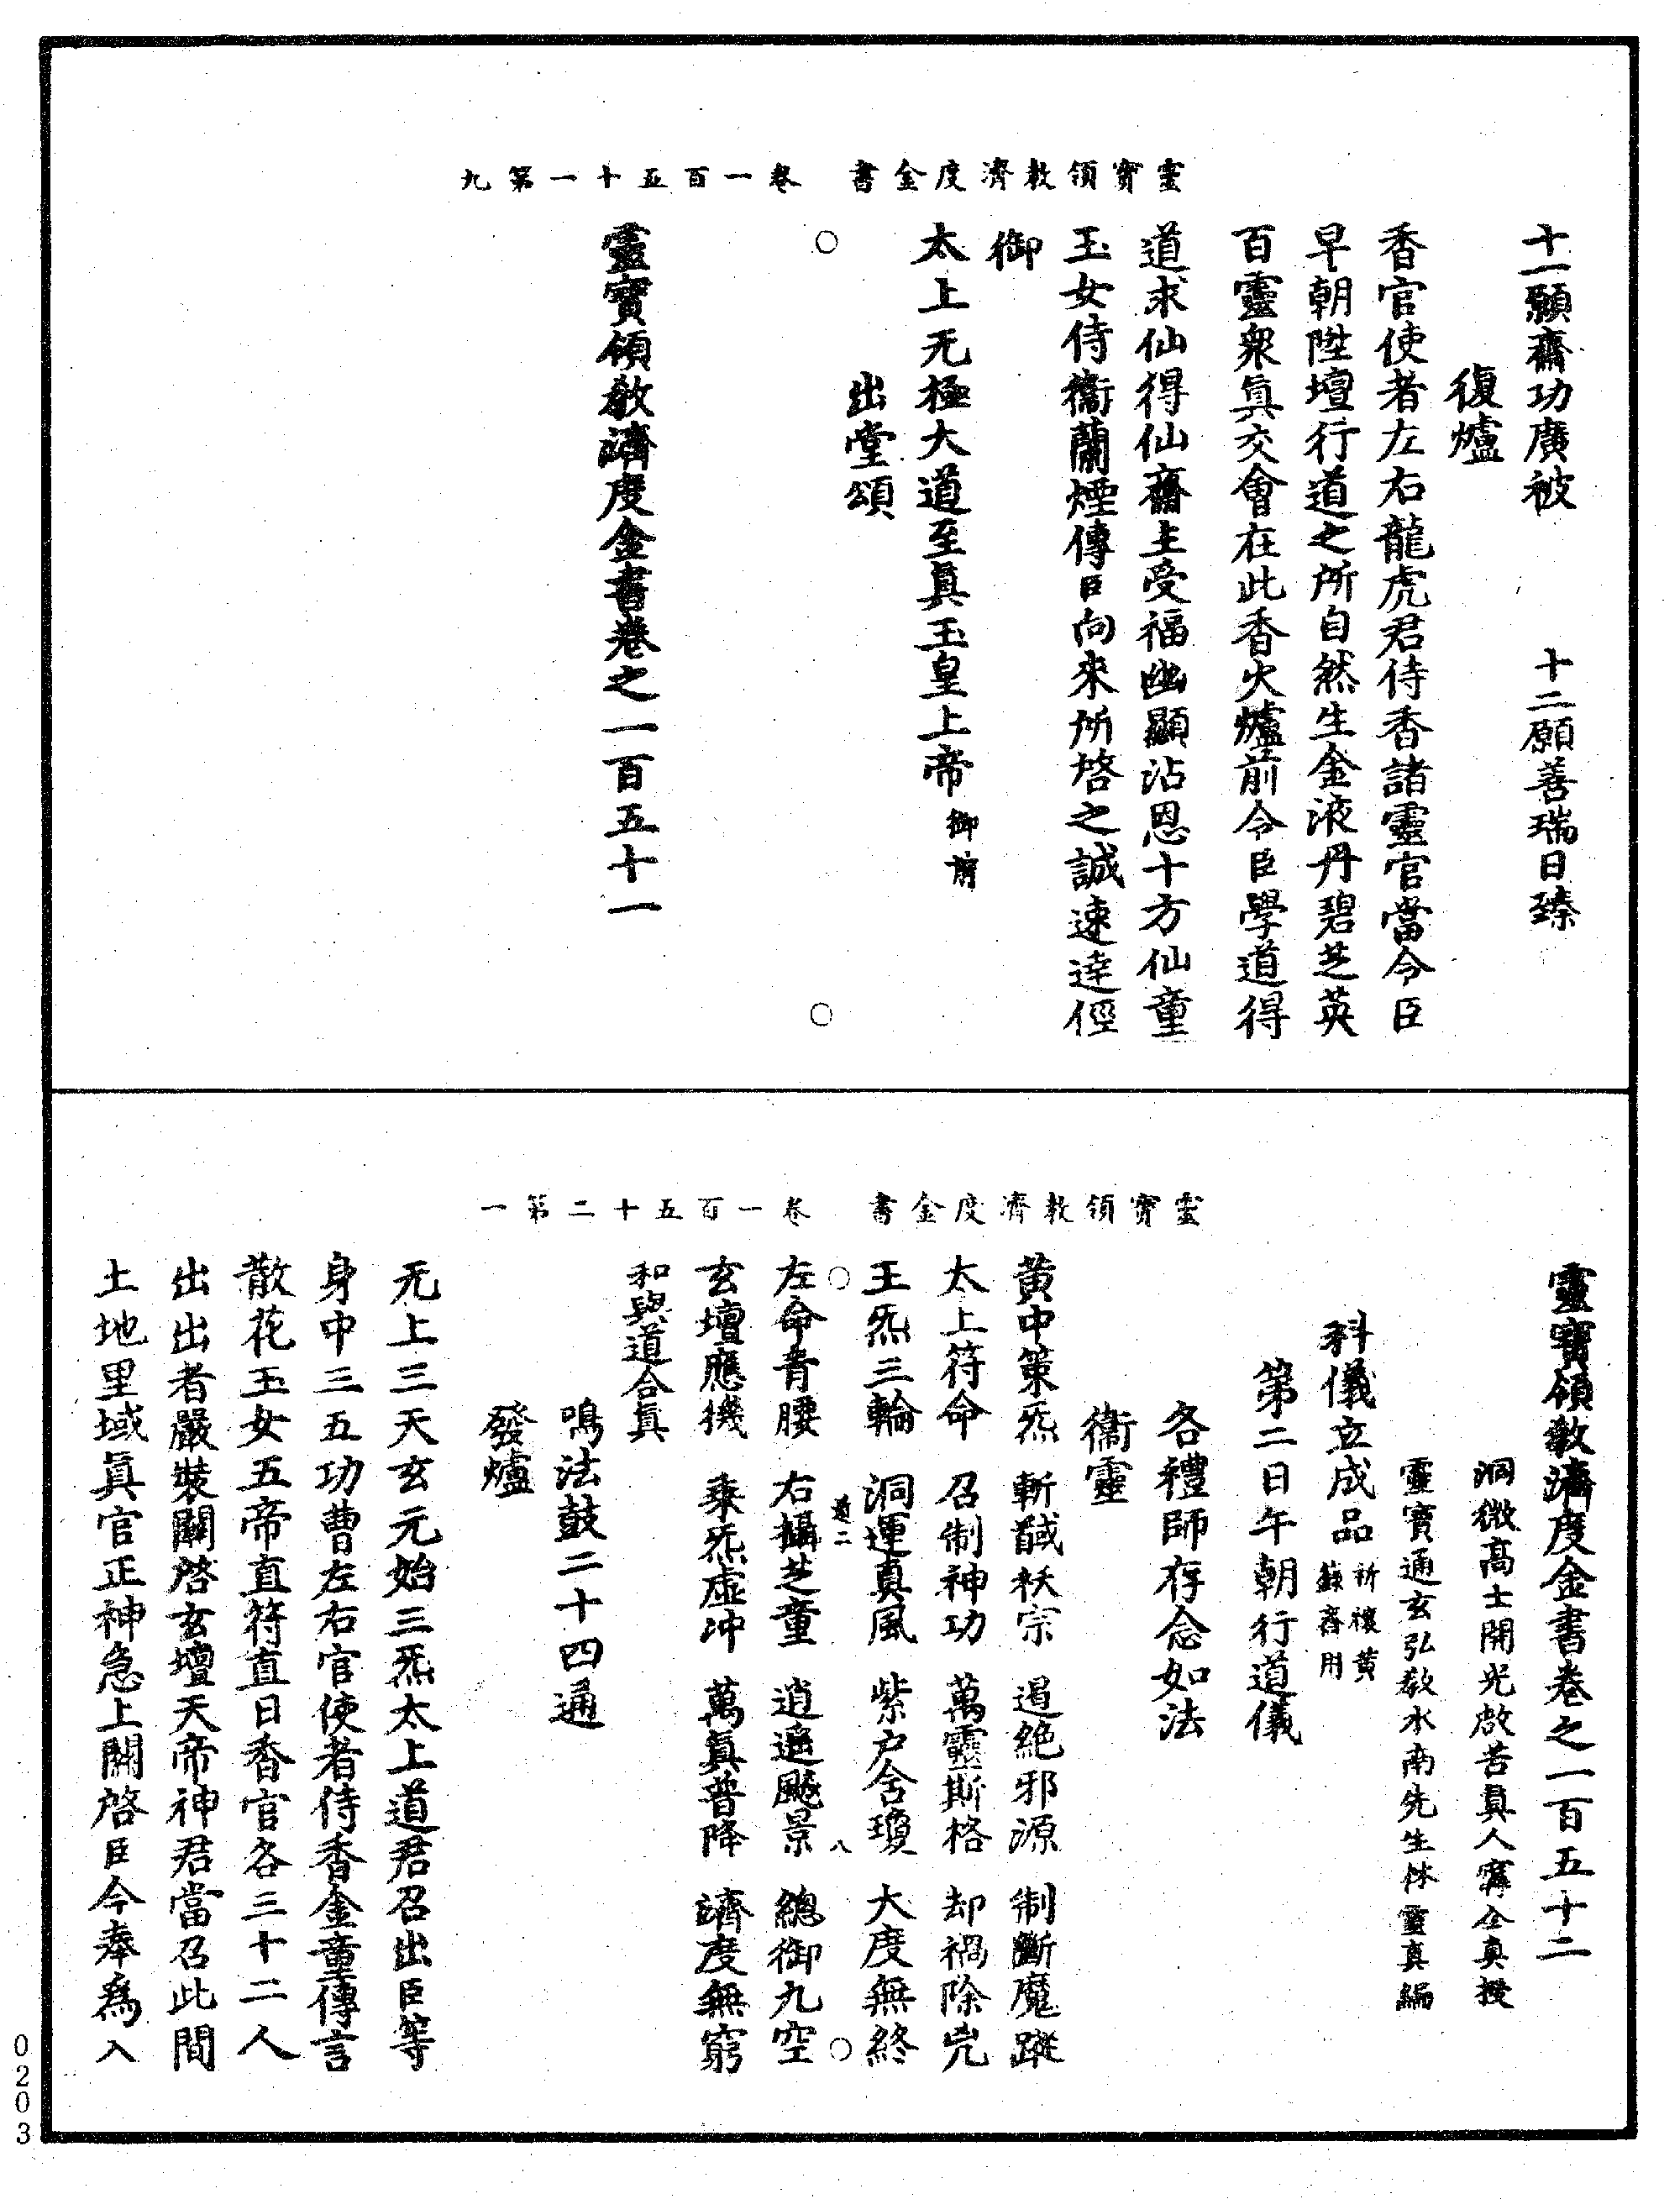 靈寶領教濟度金書　卷一百五十一第九
十一願齋功廣被　十二願善瑞日臻
復爐
香官使者左右龍虎君侍香諸靈官當令臣
早朝陞壇行道之所自然生金液丹碧芝英
百靈衆眞交會在此香火爐前令臣學道得
道求仙得仙齋主受福幽顯沾恩十方仙童
玉女侍衞蘭煙傳臣向來所啓之誠速達徑
御
太上无極大道至眞玉皇上帝御前
出堂頌
靈寶領敎濟度金書卷之一百五十一
靈寶領教濟度金書　卷一百五十二第一
靈寶領敎濟度金書卷之一百五十二
洞微高士開光啟苦眞人甯全真授
靈寶通玄弘敎水南先生林靈真編
科儀立成品祈禳黃籙齋用
第二日午朝行道儀
各禮師存念如法
衞靈
黃中策炁　斬馘祅宗　遏絶邪源　制斷魔蹤
太上符命　召制神功　萬靈斯格　却禍除兇
王炁三輪　洞運真風　紫户含瓊　大度無終
道二　八
左命青腰　右攝芝童　逍遙飈景　總御九空
玄壇應機　乘炁虛冲　萬眞普降　濟度無窮
和與道合眞
鳴法鼓二十四通
發爐
无上三天玄元始三炁太上道君召出臣等
身中三五功曹左右官使者侍香金童傳言
散花玉女五帝直符直日香官各三十二人
出出者嚴裝關啓玄壇天帝神君當召此間
土地里域眞官正神急上關啓臣今奉爲入
0203